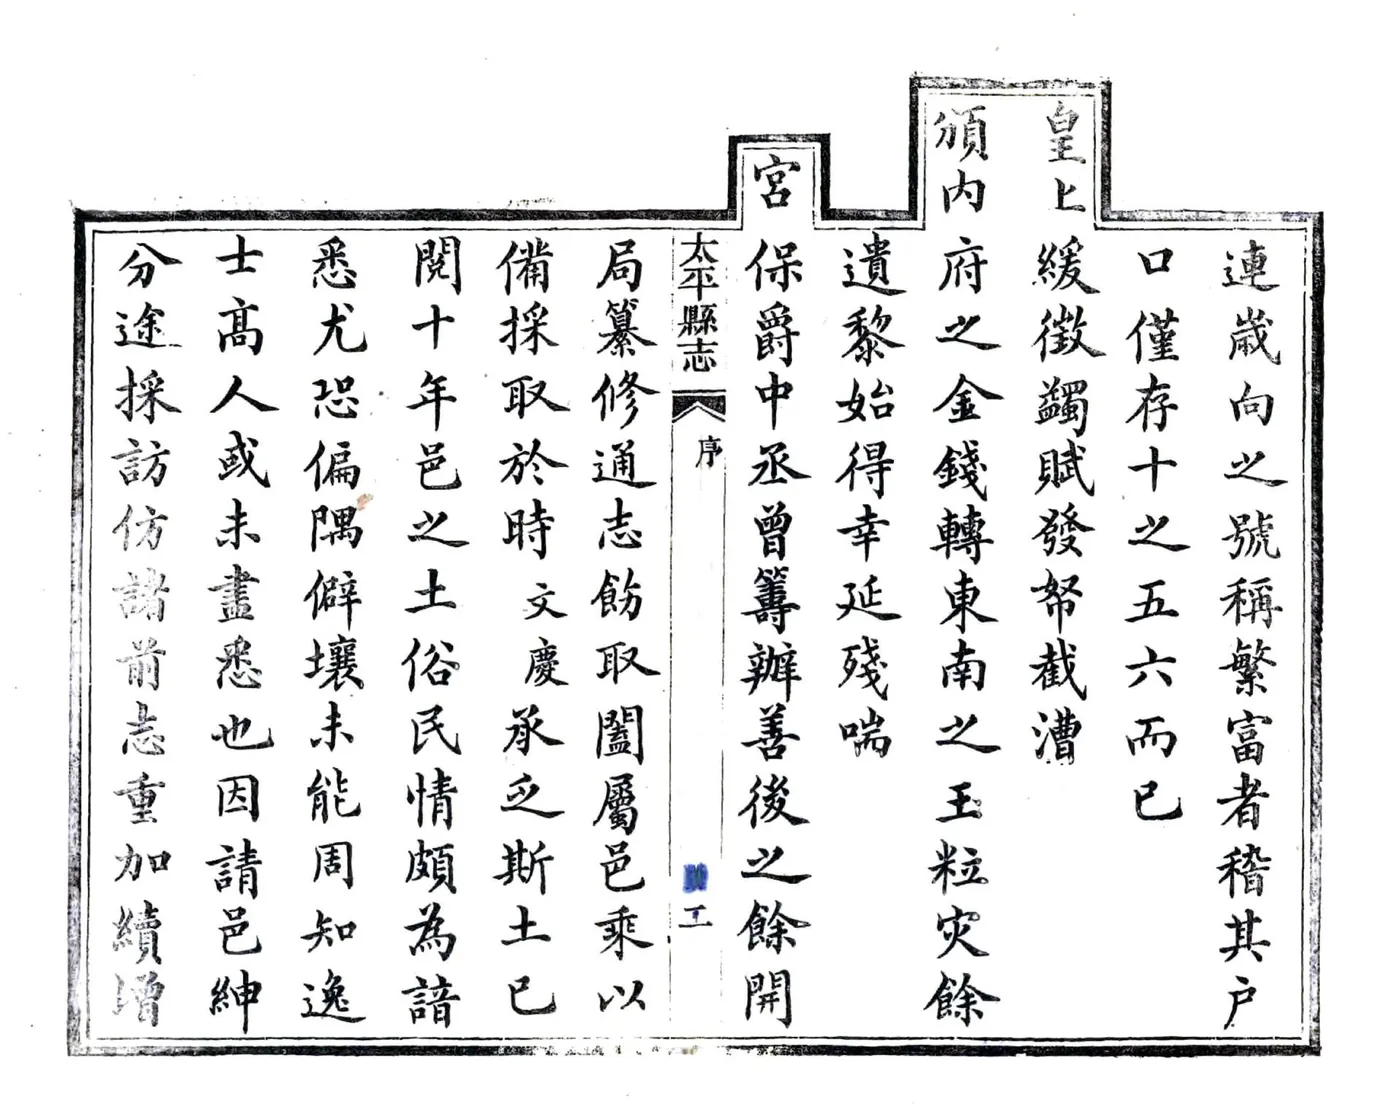 連歲向之號稱繁富者稽其戶
口僅存十之五六而已
皇上緩徵蠲賦發帑截漕
頒內府之金錢轉東南之玉粒灾餘
遺黎始得幸延殘喘
宮保爵中丞曾籌辦善後之餘開
太平縣志
序
二
局纂修通志飭取闔屬邑乘以
備採取於時文慶承乏斯土已
閱十年邑之土俗民情頗為諳
悉尤恐偏隅僻壤未能周知逸
士高人或未盡悉也因請邑紳
分途採訪仿諸前志重加續增